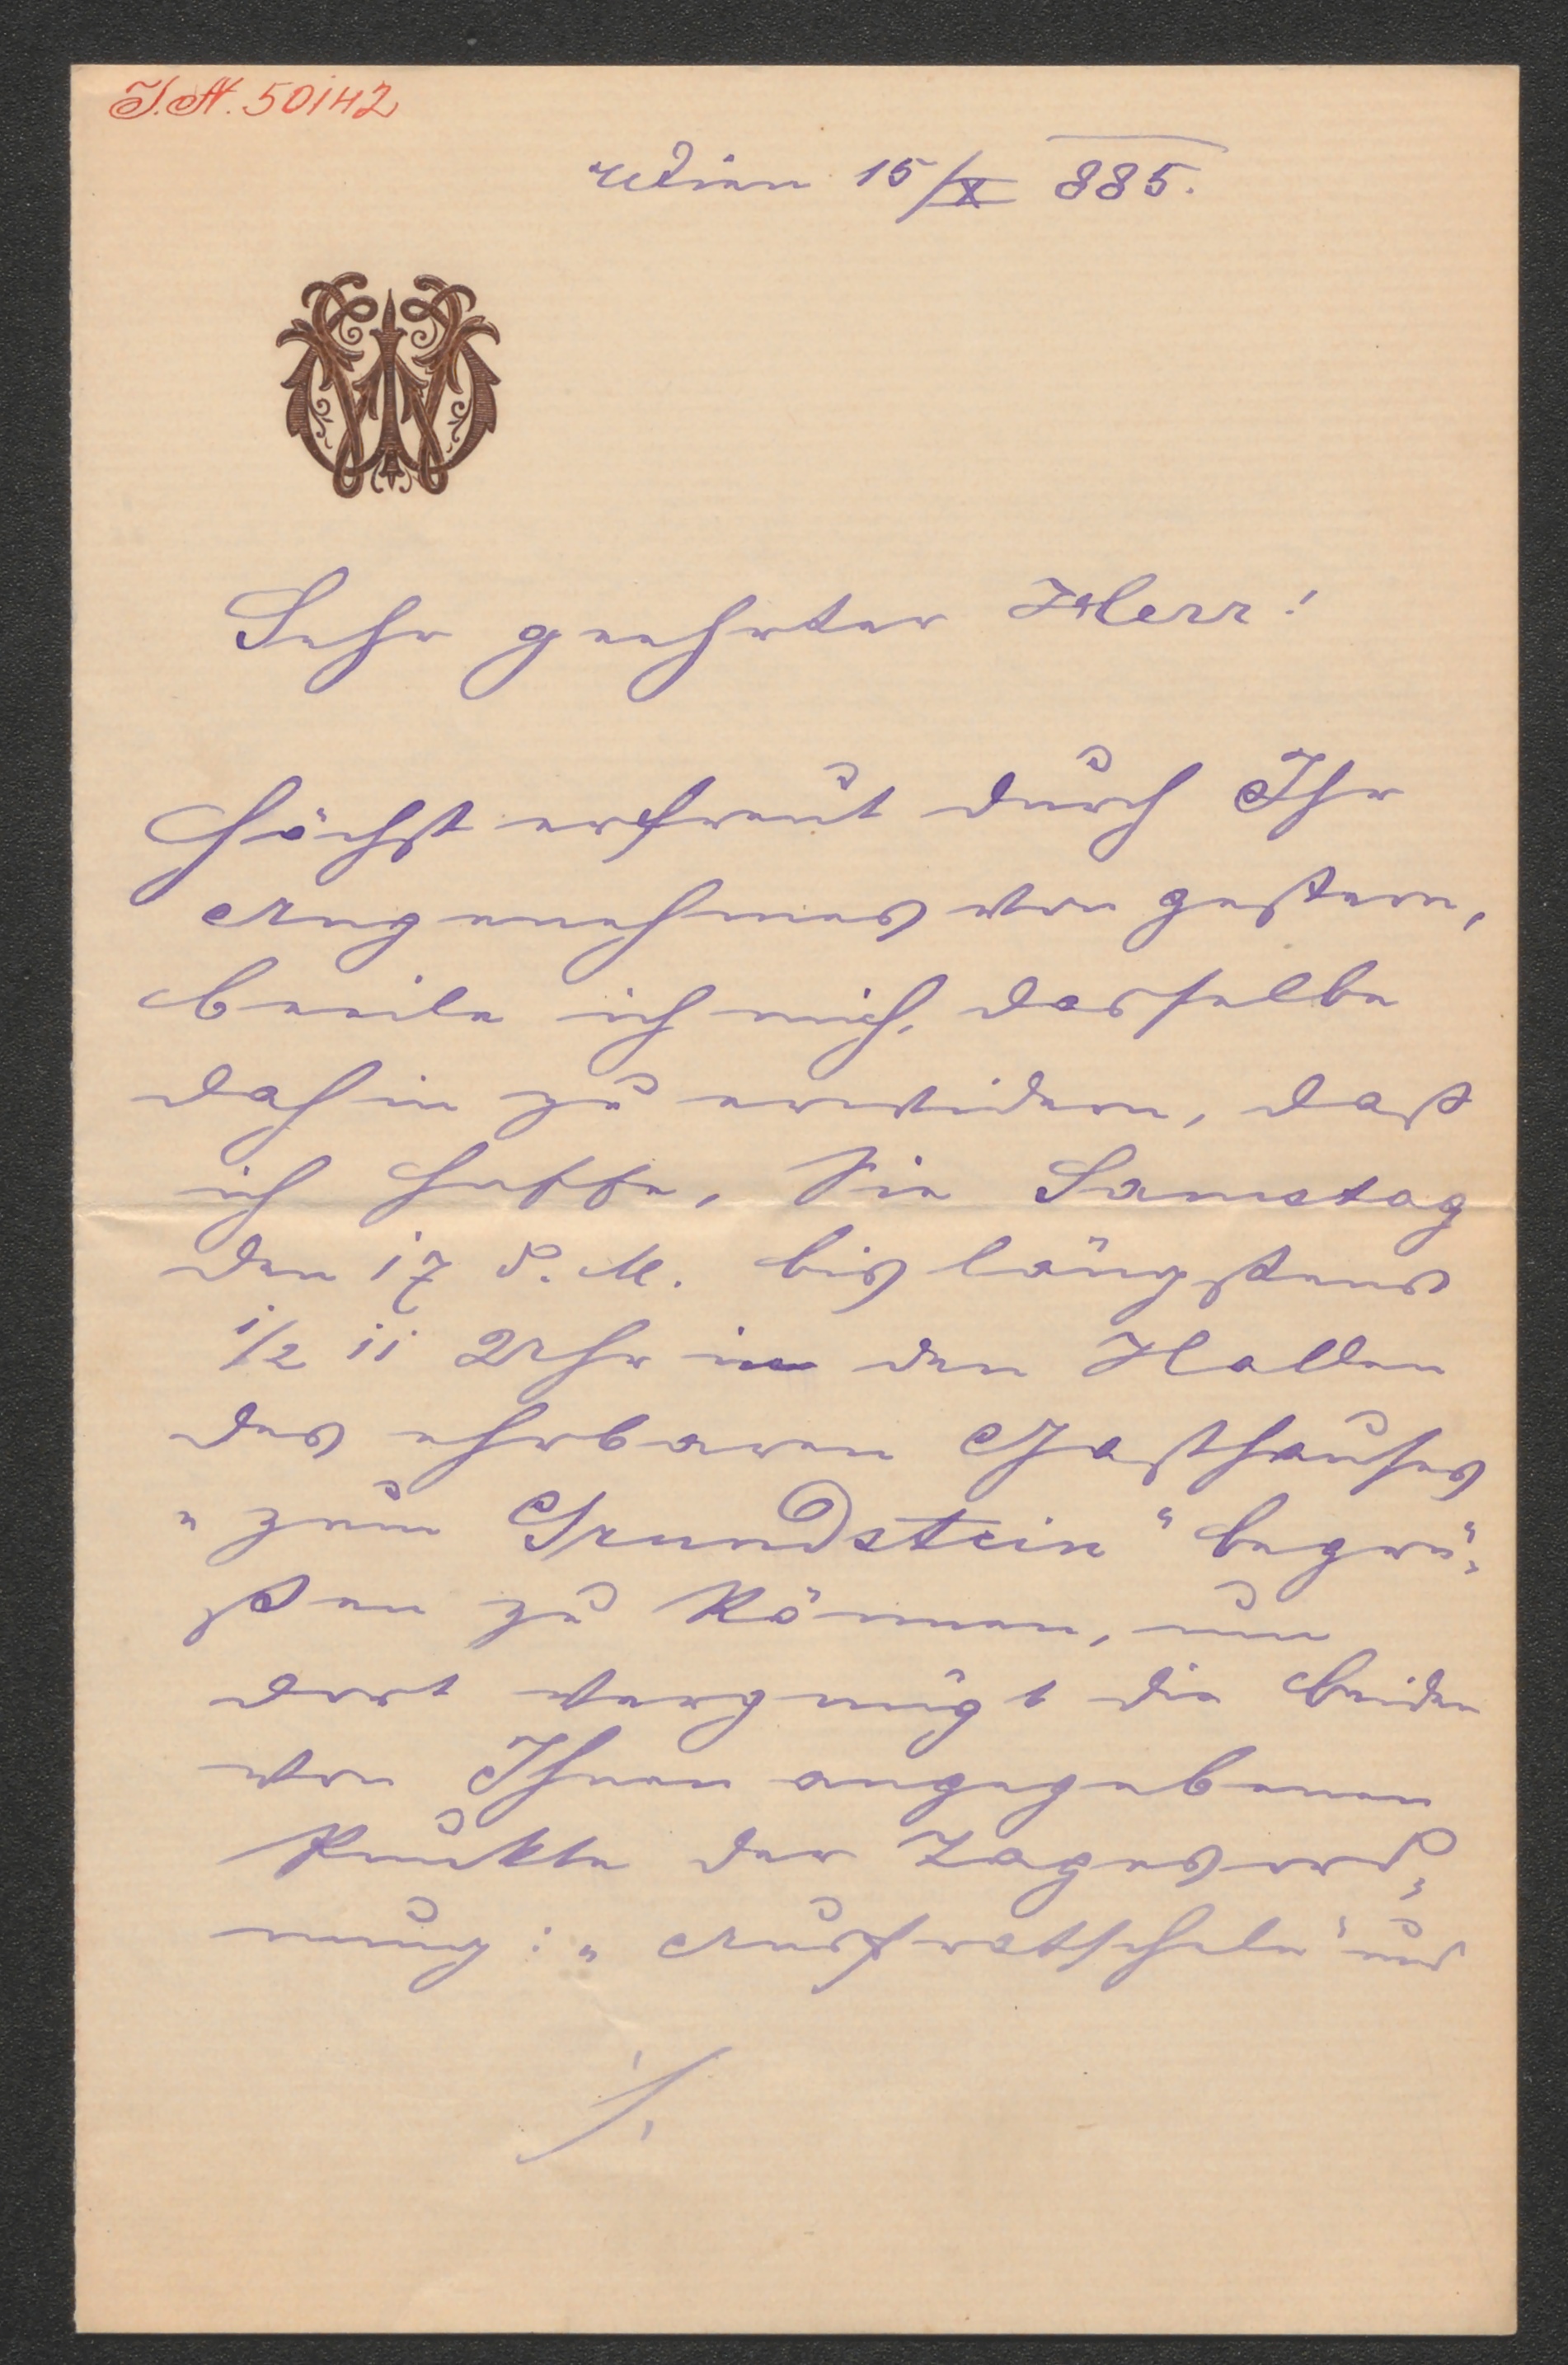 I.N. 50142
Wien 15/X 885.
Sehr geehrter Herr!
Höchst erfreut durch Ihr
Angenehmes von gestern,
beeile ich mich, dasselbe
dahin zu erwidern, daß
ich hoffe, Sie Samstag
den 17 d. M. bis längstens
1/2 11 Uhr in den Hallen
des ehrbaren Gasthauses
„zum Grundstein“ begrü-
ßen zu können, um
dort vergnügt die beiden
von Ihnen angegebenen
Punkte der Tagesord-
nung: „Ausfratscheln“ und
./.